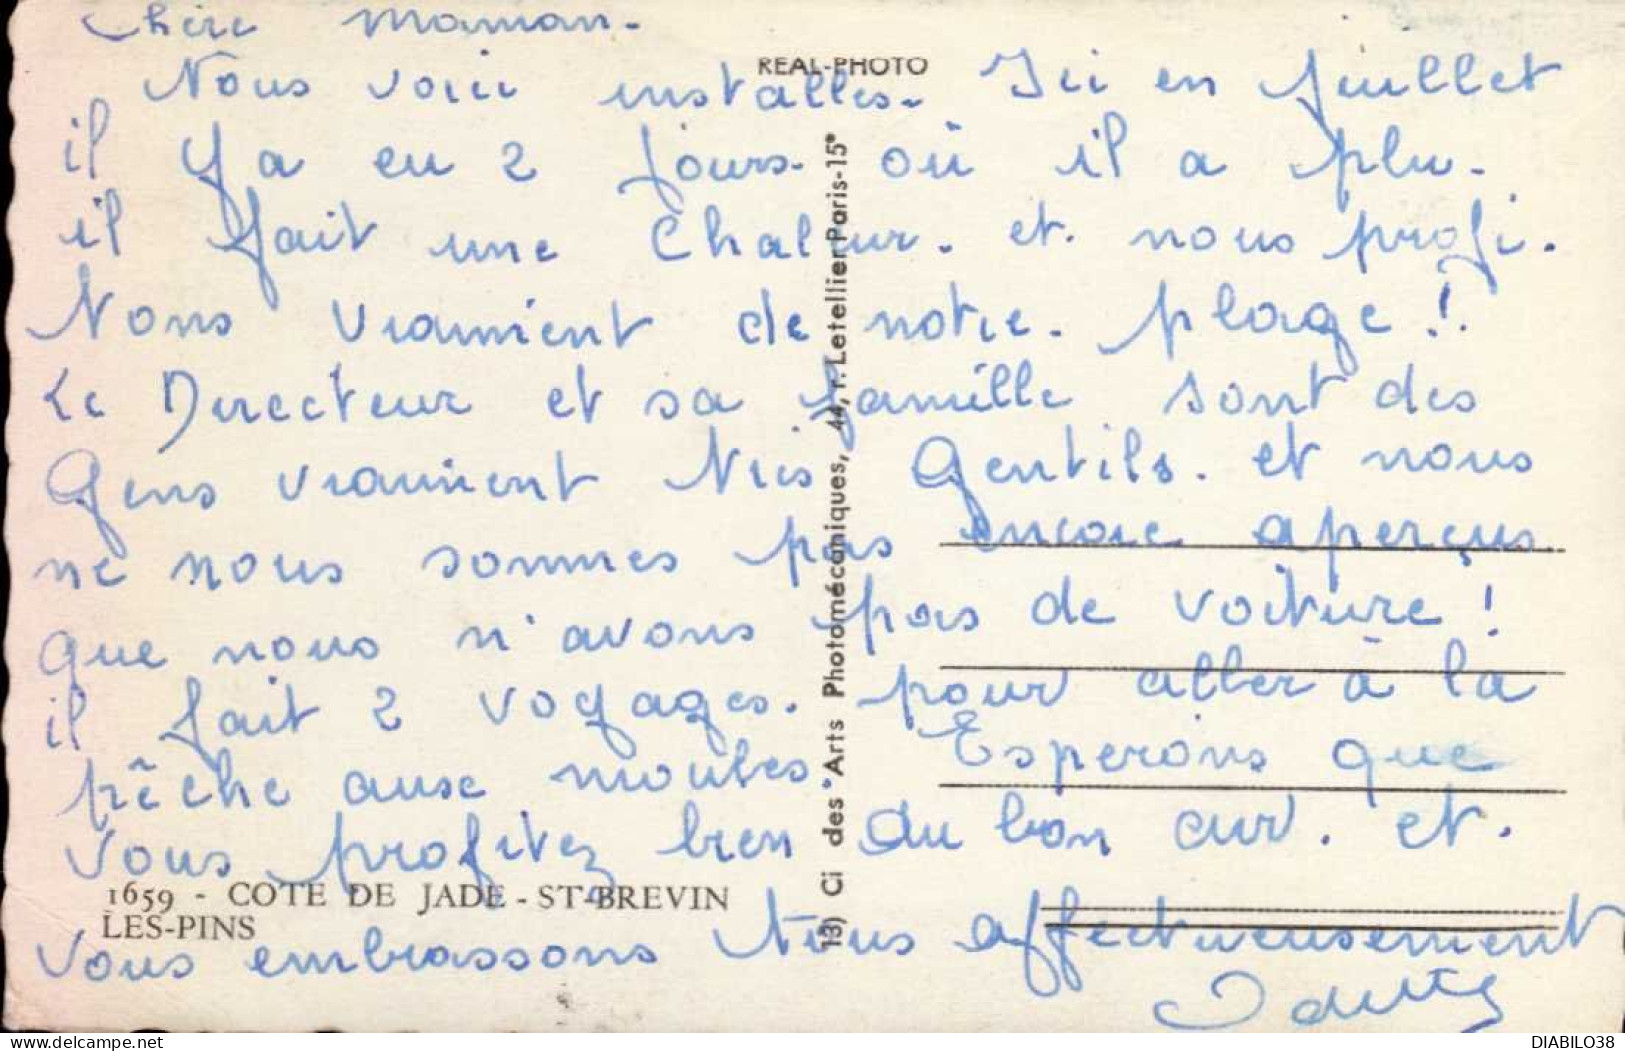 Chère maman.
REAL-PHOTO
Nous voici installes. Ici en juillet
il Y a eu 2 jours. où il a plu.
il fait une Chaleur. et. nous profi.
Nons vraiment de notre. plage !.
Le Directeur et sa famille sont des
Gens vraiment tres Gentils. et nous
ne nous sommes pas encore aperçus.
que nous n'avons pas de voiture !
il fait 2 voyages. pour aller à la
pêche aux moules Esperons que
Vous profitez bien du bon air. et.
1659 - COTE DE JADE - ST-BREVIN
LES-PINS
Vous embrassons tous affectueusement
13) Ci des "Arts Photomécaniques, 44, r. Letellier Paris-15e
DIABILO38